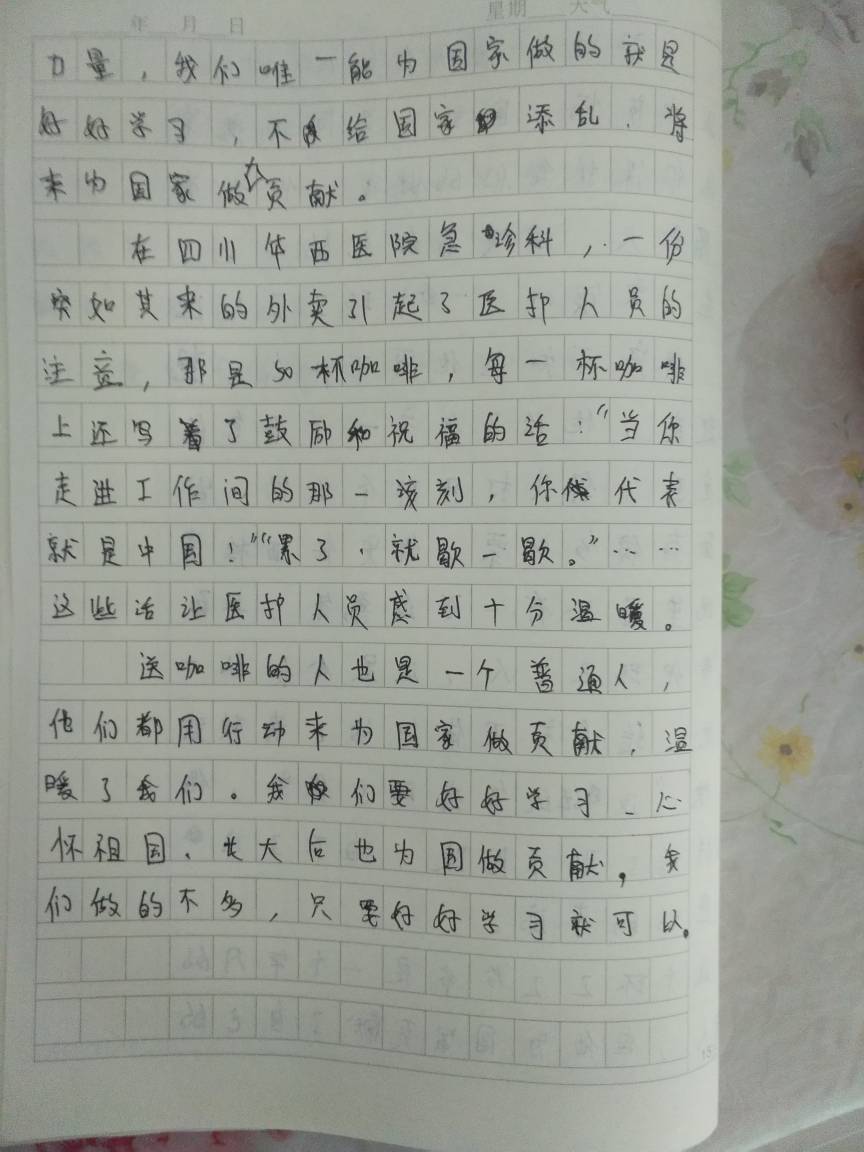 年 月 日 星期 天气
力量，我们唯一能为国家做的就是
好好学习，不给国家添乱、将
来为国家做大贡献。
在四川体西医院急诊科，一份
突如其来的外卖引起了医护人员的
注意，那是50杯咖啡，每一杯咖啡
上还写着了鼓励和祝福的话：“当你
走进工作间的那一该刻，你代表
就是中国！”“累了、就歇一歇。”……
这些话让医护人员感到十分温暖。
送咖啡的人也是一个普通人，
他们都用行动来为国家做贡献，温
暖了我们。我们要好好学习、心
怀祖国、长大后也为国做贡献，我
们做的不多，只要好好学习就可以。